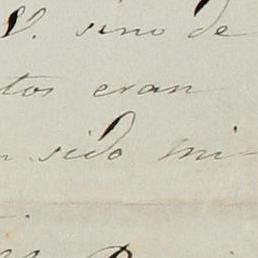 V. sino de
tos eran
n sido mi-